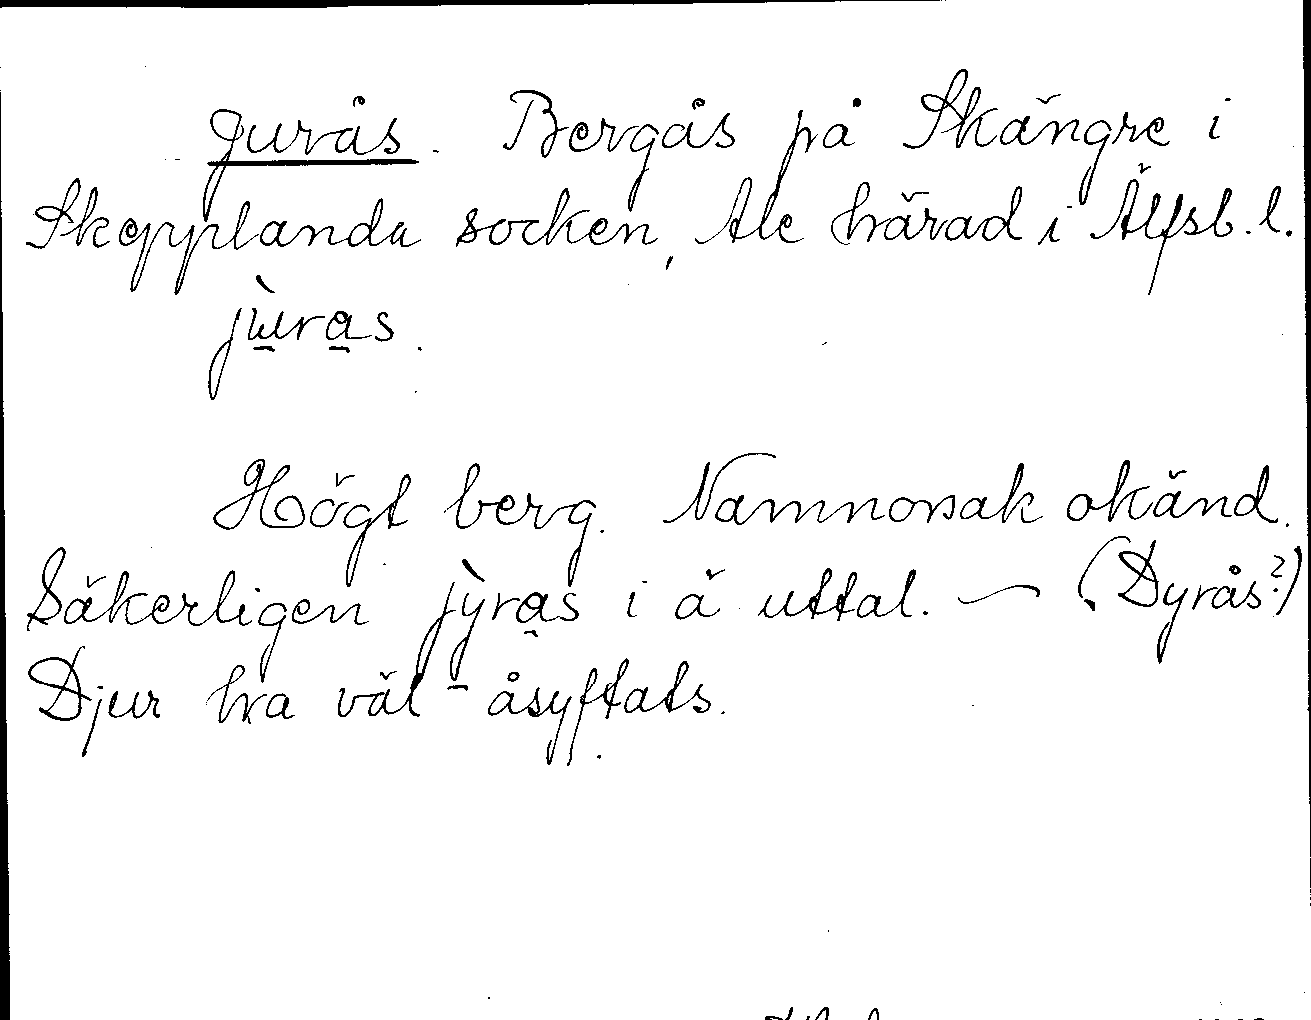 Jurås. Bergås på Skängre i
Skepplanda socken, Ale härad i Älfsb. l.
jùras.
Högt berg. Namnorsak okänd.
Säkerligen jỳras i ä uttal. — (Dyrås?)
Djur ha väl - åsyftats.